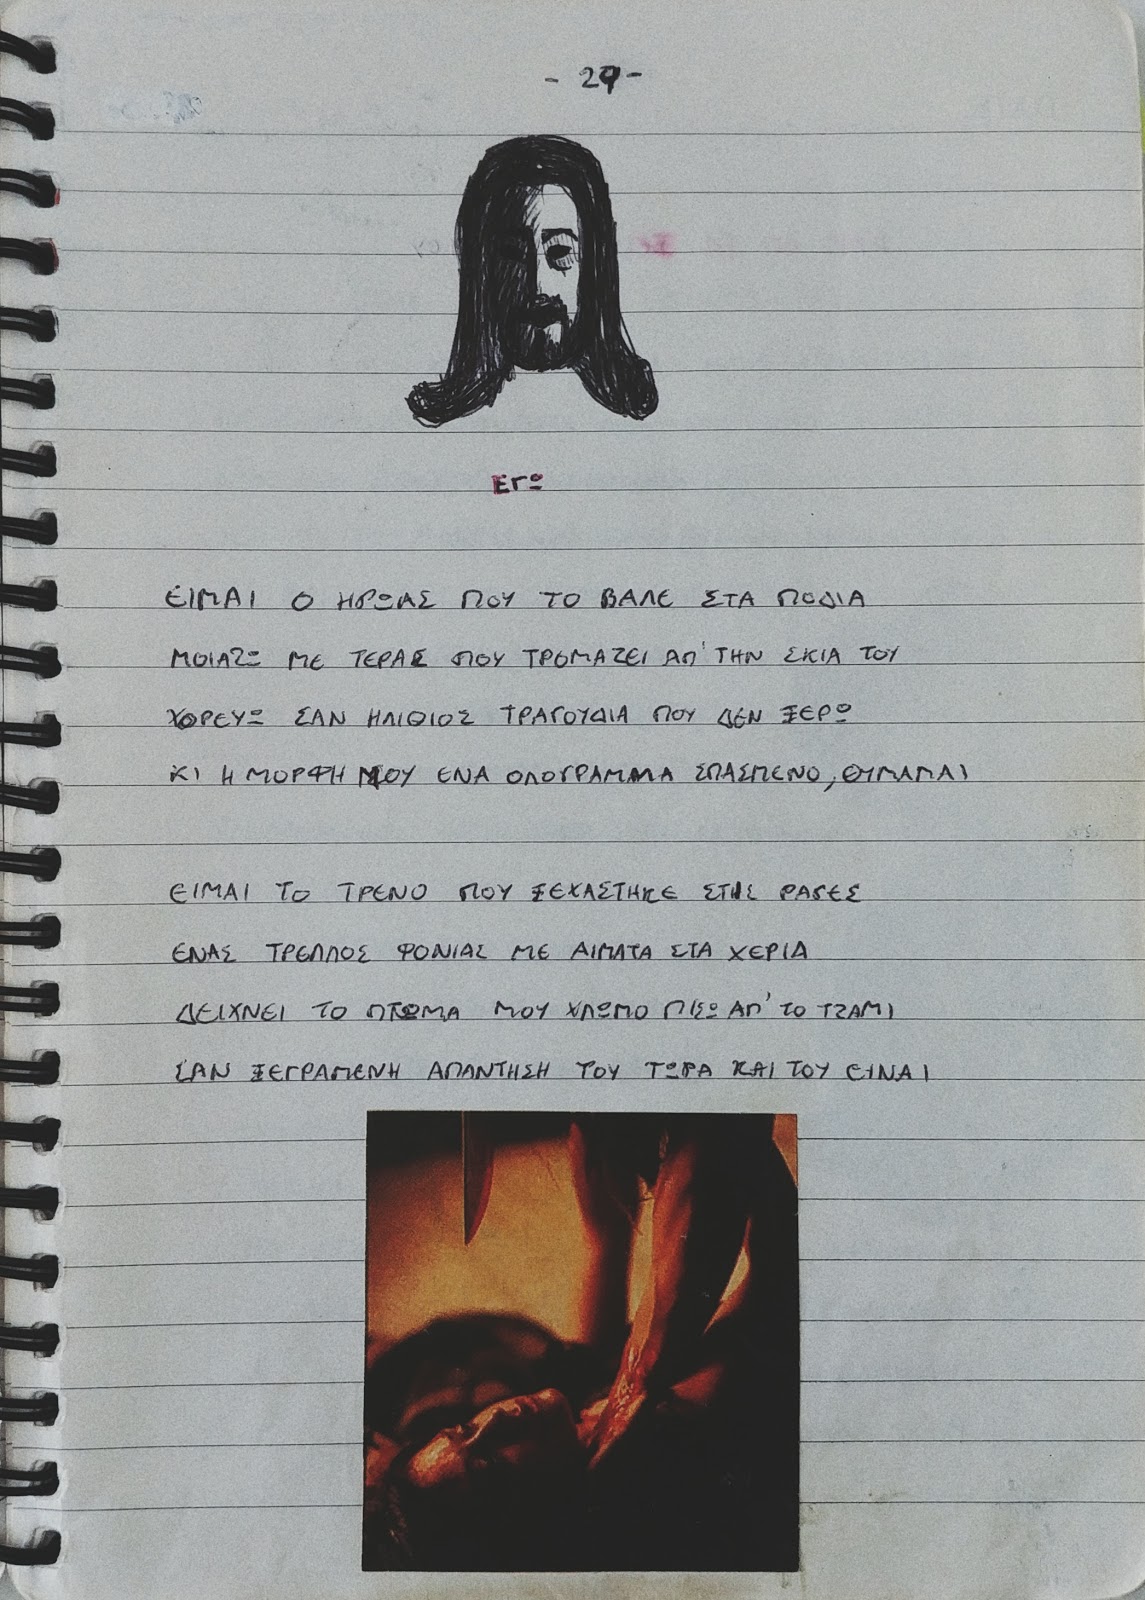 - 29 -
ΕΓΩ
ΕΙΜΑΙ Ο ΗΡΩΑΣ ΠΟΥ ΤΟ ΒΑΛΕ ΣΤΑ ΠΟΔΙΑ
ΜΟΙΑΖΩ ΜΕ ΤΕΡΑΣ ΠΟΥ ΤΡΟΜΑΖΕΙ ΑΠ' ΤΗΝ ΣΚΙΑ ΤΟΥ
ΧΟΡΕΥΩ ΣΑΝ ΗΛΙΘΙΟΣ ΤΡΑΓΟΥΔΙΑ ΠΟΥ ΔΕΝ ΞΕΡΩ
ΚΙ Η ΜΟΡΦΗ ΜΟΥ ΕΝΑ ΟΛΟΓΡΑΜΜΑ ΣΠΑΣΜΕΝΟ, ΘΥΜΑΜΑΙ
ΕΙΜΑΙ ΤΟ ΤΡΕΝΟ ΠΟΥ ΞΕΧΑΣΤΗΚΕ ΣΤΙΣ ΡΑΓΕΣ
ΕΝΑΣ ΤΡΕΛΛΟΣ ΦΟΝΙΑΣ ΜΕ ΑΙΜΑΤΑ ΣΤΑ ΧΕΡΙΑ
ΔΕΙΧΝΕΙ ΤΟ ΠΤΩΜΑ ΜΟΥ ΧΛΩΜΟ ΠΙΣΩ ΑΠ' ΤΟ ΤΖΑΜΙ
ΣΑΝ ΞΕΓΡΑΜΕΝΗ ΑΠΑΝΤΗΣΗ ΤΟΥ ΤΩΡΑ ΚΑΙ ΤΟΥ ΕΙΝΑΙ